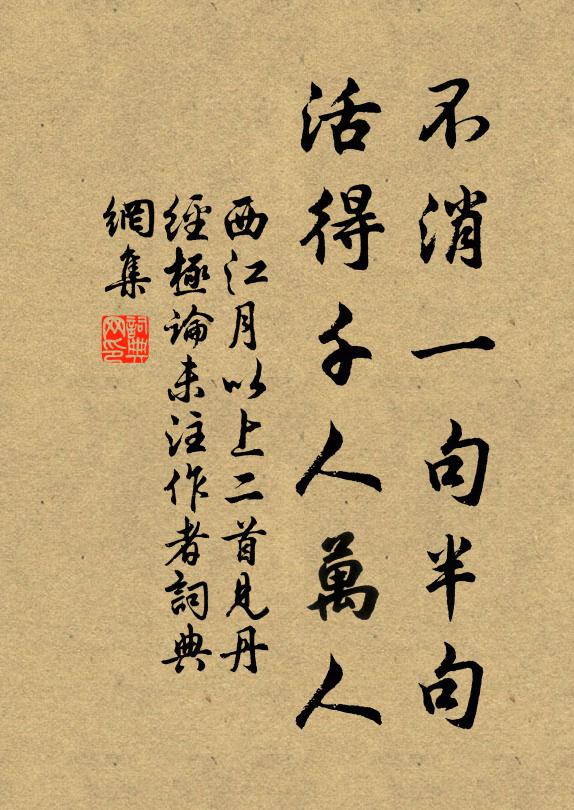 不消一句半句
活得千人萬人
西江月以上二首見丹
經極論未注作者詞典
網集
詞典网印